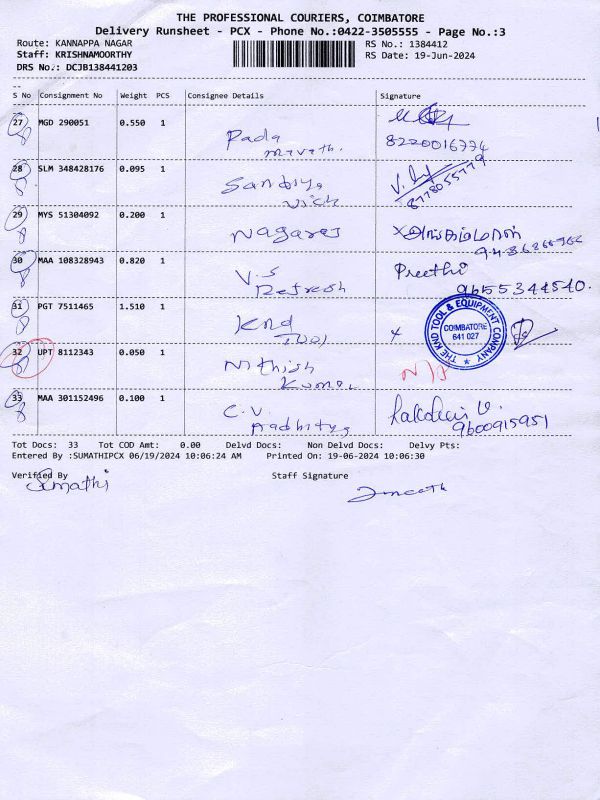 THE PROFESSIONAL COURIERS, COIMBATORE
Delivery Runsheet - PCX - Phone No.:0422-3505555 - Page No.:3
Route: KANNAPPA NAGAR
RS No.: 1384412
Staff: KRISHNAMOORTHY
RS Date: 19-Jun-2024
DRS No.: DCJB138441203
S No Consignment No Weight PCS Consignee Details Signature
27 MGD 290051 0.550 1
8220016774
28 SLM 348428176 0.095 1 Sandiya
8778055779
29 MYS 51304092 0.200 1 Nagaraj
30 MAA 108328943 0.820 1 V.S Preethi
Refresh 9655344540.
31 PGT 7511465 1.510 1 Knd
Tool
THE KND TOOL & EQUIPMENT COMPANY
COIMBATORE
641 027
32 UPT 8112343 0.050 1 Nithish N/A
Kumar
33 MAA 301152496 0.100 1 C.V.
9600915951
Tot Docs: 33 Tot COD Amt: 0.00 Delvd Docs: Non Delvd Docs: Delvy Pts:
Entered By :SUMATHIPCX 06/19/2024 10:06:24 AM Printed On: 19-06-2024 10:06:30
Verified By Staff Signature
Sumathi